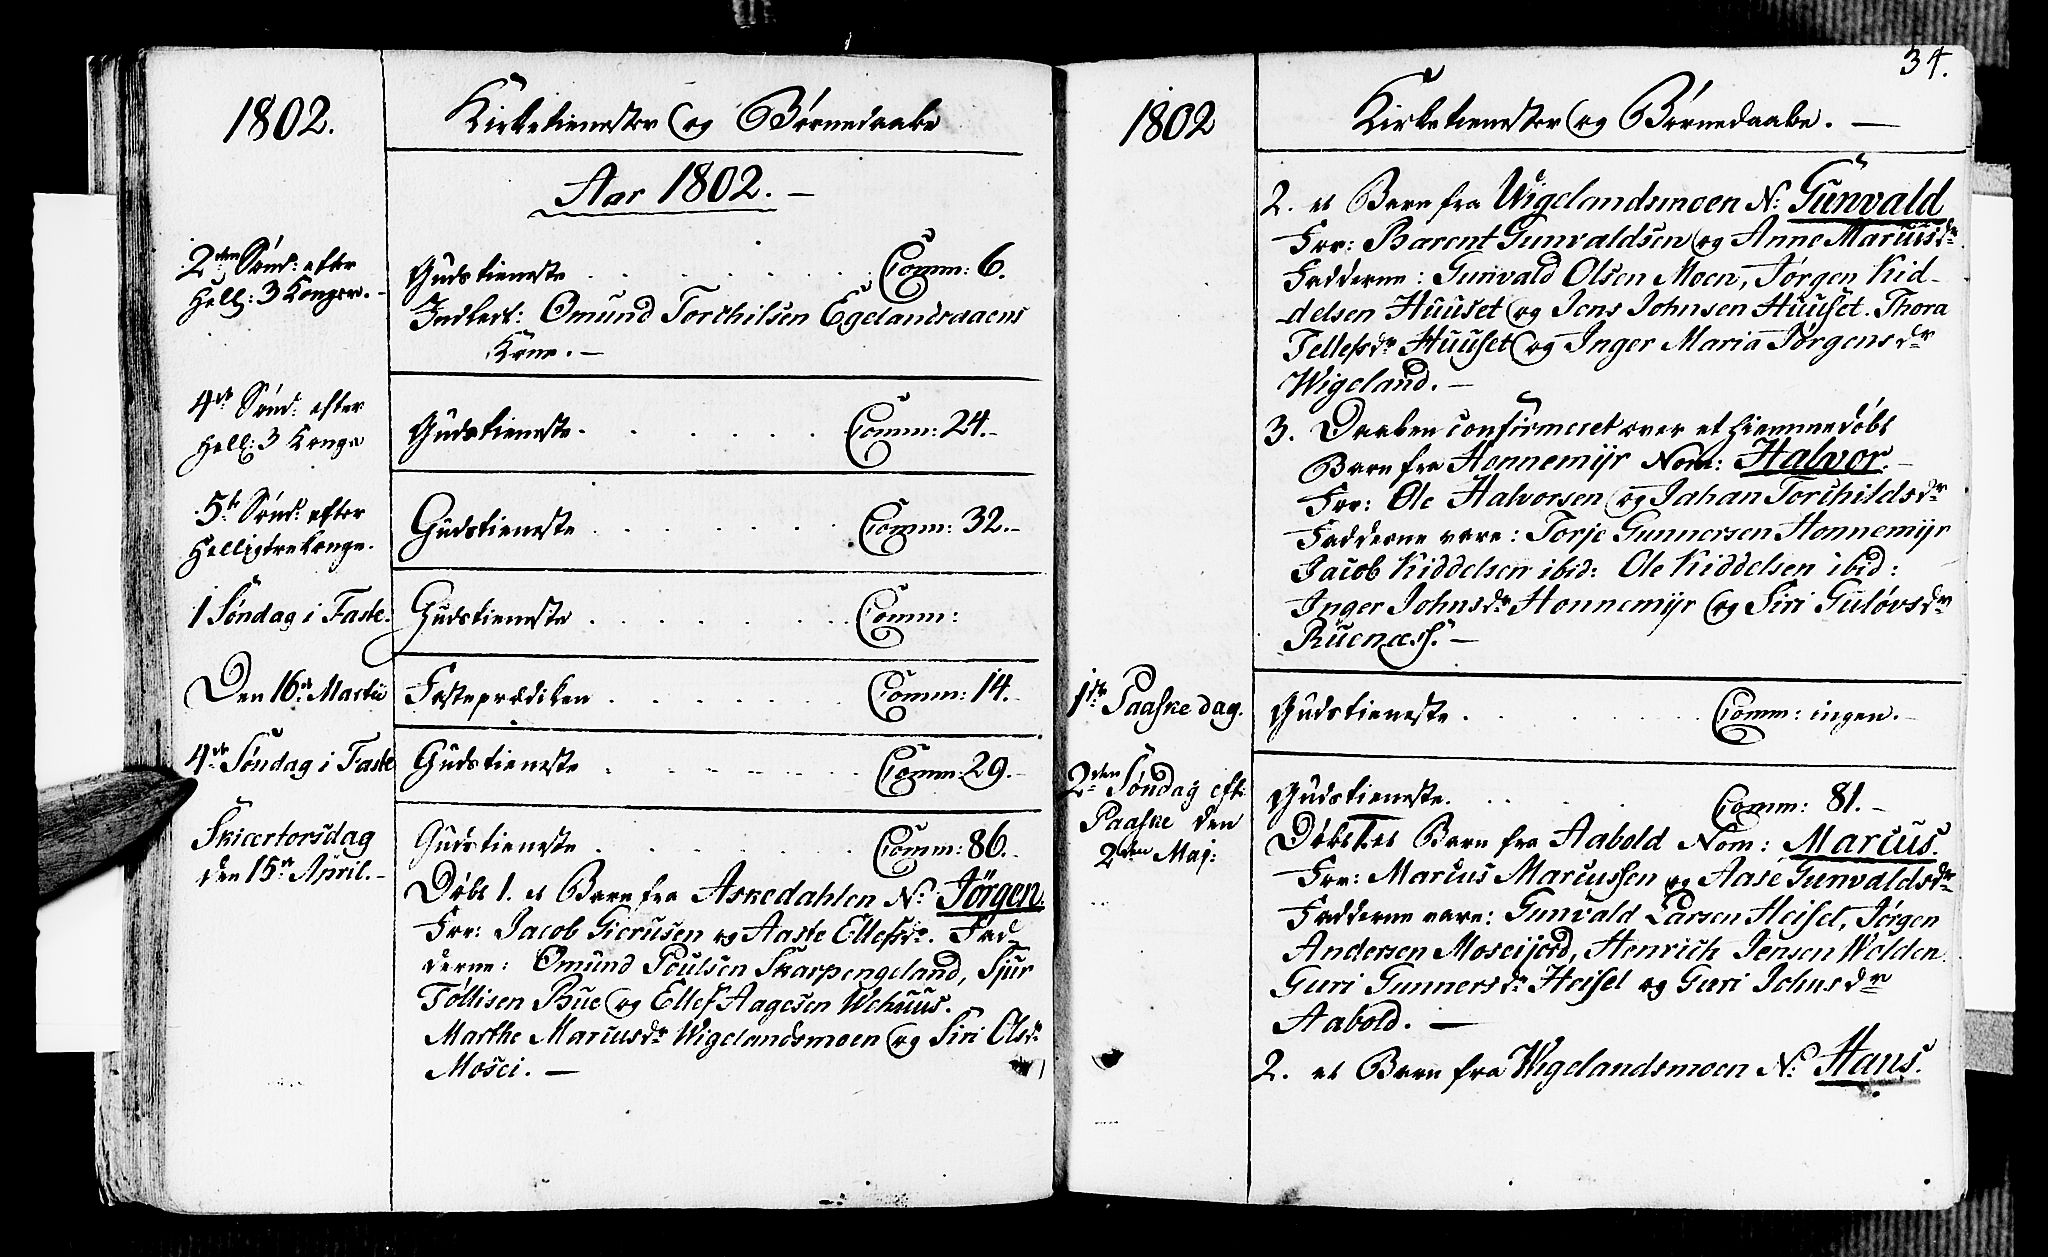 1802.
Kirketienester og Børnedaabe
Aar 1802. —
2den Sønd: efter
Hell: 3 Konger. -
Gudstieneste . . . . . . . Comm: 6.
Indledt: Omund Torchilsen Egelandsaaens
Kone. —
4de Sønd: efter
Hell: 3 Konge
Gudstieneste . . . . . . Comm: 24. -
5te Sønd: efter
Helligtrekonge.
Gudstieneste . . . . . . Comm: 32. -
1 Søndag i Faste.
Gudstieneste . . . . . . . Comm:
Den 16de Martii
Fasteprædiken . . . . . . Comm: 14. -
4de Søndag i Faste
Gudstieneste . . . . . . . Comm: 29. -
Skiærtorsdag
den 15de April. -
Gudstieneste . . . . . . . Comm: 86. -
Døbt 1. et Barn fra Askedahlen N: Jørgen.
For: Jacob Gierusen og Aaste Ellefsdr. Fad-
derne: Omund Poulsen Skarpengeland, Sjur
Tøllisen Bue og Ellef Aagesen Wehuus.
Marthe Marcusdr Wigelandsmoen og Siri Olsdr
Mosei. —
34.
1802
Kirketienester og Børnedaabe. —
2. et Barn fra Wigelandsmoen N: Gunvald
For: Barent Gunvaldsen og Anne Marcusdr
Fadderne: Gunvald Olsen Moen, Jørgen Kid-
delsen Huuset og Jens Johnsen Huuset. Thora
Tellefsdr Huuset og Inger Maria Jørgensdr
Wigeland. —
3. Daaben confirmeret over et hiemmedøbt
Barn fra Honnemyr Nom: Halvor. -
For: Ole Halvorsen og Johan Torchildsdr
Fadderne vare: Torje Gunnersen Honnemyr
Jacob Kiddelsen ibid: Ole Kiddelsen ibid:
Inger Johnsdr Honnemyr og Siri Guløvsdr
Ruenæss. —
1ste Paaske dag.
Gudstieneste . . . . . . Comm: ingen. -
2den Søndag eft:
Paaske den
2den Maj:
Gudstieneste. . . . . Comm: 81. -
Døbt 1. et Barn fra Aabold Nom: Marcus.
For: Marcus Marcussen og Aase Gunvaldsdr
Fadderne vare: Gunvald Larsen Heisel, Jørgen
Andersen Moseijord, Henrich Jensen Wolden
Guri Gunnersdr Heisel og Guri Johnsdr
Aabold. —
2. et Barn fra Wigelandsmoen N: Hans.